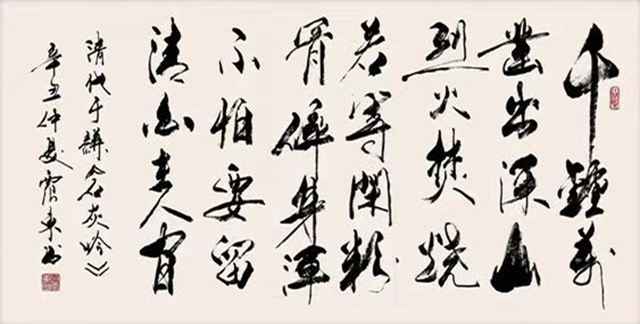 千錘萬
凿出深山
烈火焚燒
若等閑粉
骨碎身渾
不怕要留
清白在人间
清代于謙《石灰吟》
辛丑仲夏東书